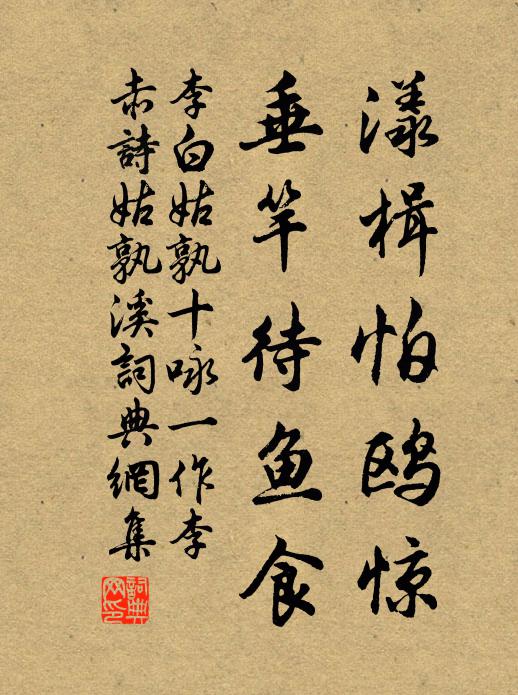 漾楫怕鸥惊
垂竿待鱼食
李白姑孰十咏一作李
赤詩姑孰溪詞典網集
詞典网印